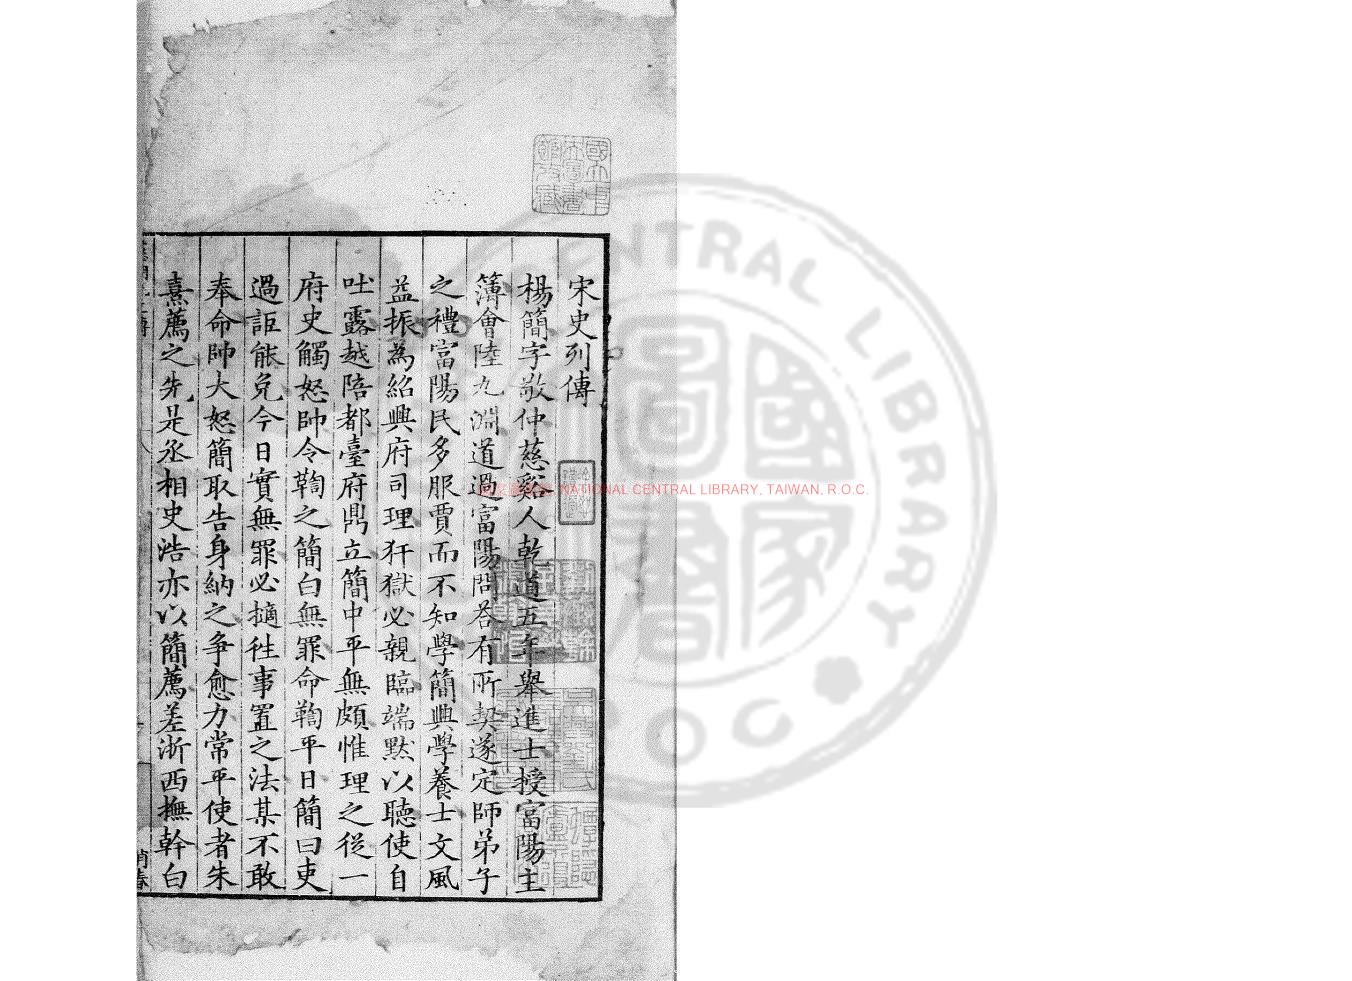 宋史列傳
楊簡字敬仲慈谿人乾道五年舉進士授富陽主
簿會陸九淵道過富陽問荅有所契遂定師弟子
之禮富陽民多服賈而不知學簡興學養士文風
益振為紹興府司理犴獄必親臨端默以聽使自
吐露越陪都臺府鼎立簡中平無頗惟理之從一
府史觸怒帥令鞫之簡白無罪命鞫平日簡曰吏
過詎能免今日實無罪必擿徃事置之法某不敢
奉命帥大怒簡取告身納之争愈力常平使者朱
熹薦之先是丞相史浩亦以簡薦差浙西撫幹白
國立中央圖書館收藏
NATIONAL CENTRAL LIBRARY, TAIWAN, R.O.C.